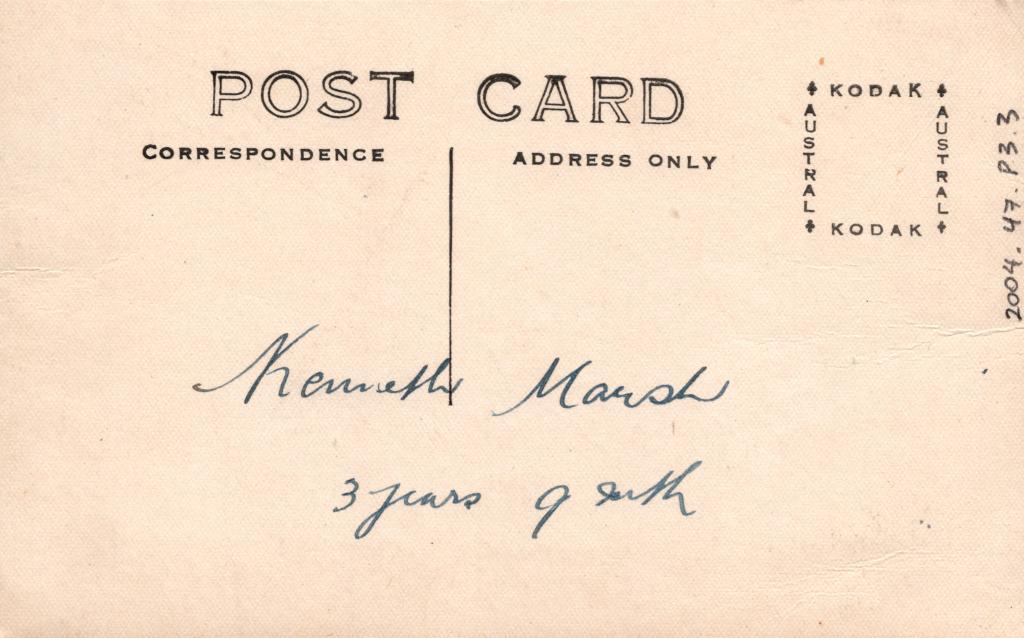 POST CARD
CORRESPONDENCE
ADDRESS ONLY
KODAK
AUSTRAL
AUSTRAL
KODAK
2004.47.P3.3
Kenneth Marsh
3 years 9 mth